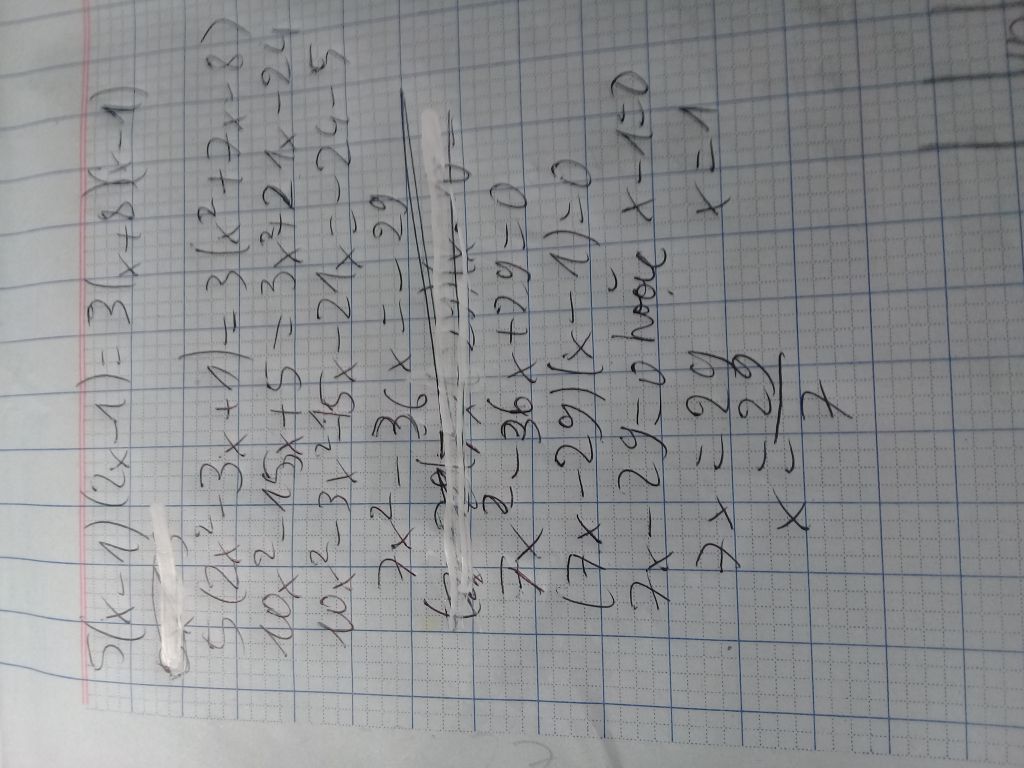 5(x-1)(2x-1)=3(x+8)(x-1)
5(2x²-3x+1)=3(x²+7x-8)
10x²-15x+5=3x²+21x-24
10x²-3x²-15x-21x=-24-5
7x²-36x=-29
7x²-36x+29=0
(7x-29)(x-1)=0
7x-29=0 hoặc x-1=0
7x=29 x=1
x=29/7